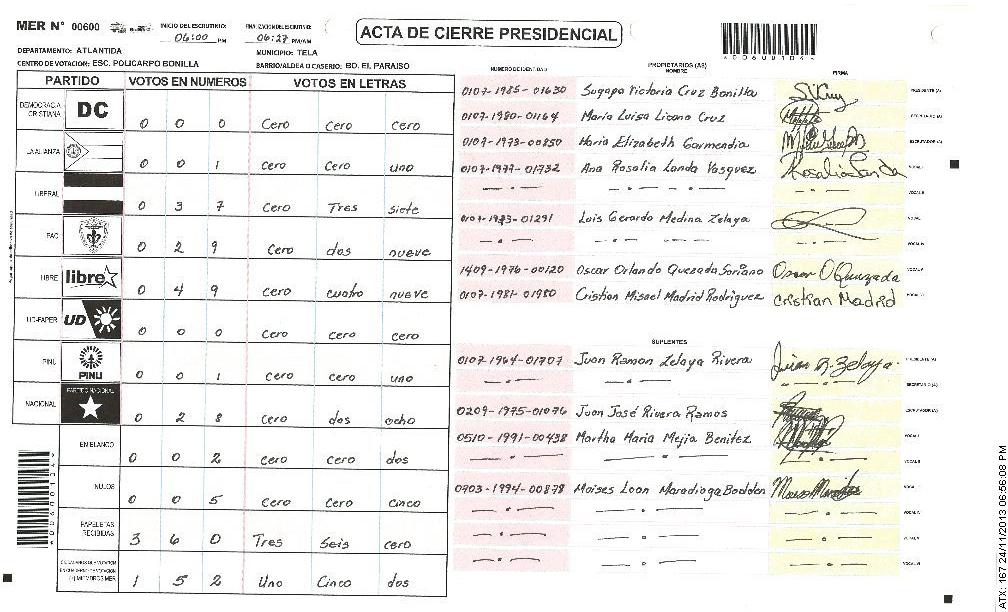 MER N° 00600
INICIO DEL ESCRUTINIO: 06:00 PM
FINALIZACION DEL ESCRUTINIO: 06:27 PM/AM
ACTA DE CIERRE PRESIDENCIAL
DEPARTAMENTO: ATLANTIDA
MUNICIPIO: TELA
CENTRO DE VOTACION: ESC. POLICARPO BONILLA
BARRIO/ALDEA O CASERIO: BO. EL PARAISO
PARTIDO VOTOS EN NUMEROS VOTOS EN LETRAS
DEMOCRACIA CRISTIANA DC 0 0 0 Cero Cero Cero
LA ALIANZA 0 0 1 Cero Cero uno
LIBERAL 0 3 7 Cero Tres siete
PAC 0 2 9 Cero dos nueve
LIBRE libre 0 4 9 Cero cuatro nueve
UD-FAPER UD 0 0 0 Cero Cero Cero
PINU PINU 0 0 1 Cero Cero uno
NACIONAL PARTIDO NACIONAL 0 2 8 Cero dos ocho
EN BLANCO 0 0 2 Cero Cero dos
NULOS 0 0 5 Cero Cero Cinco
PAPELETAS RECIBIDAS 3 6 0 Tres Seis cero
(+) MIEMBROS MER 1 5 2 Uno Cinco dos
NUMERO DE IDENTIDAD
PROPIETARIOS (AS)
NOMBRE
FIRMA
0107-1985-01630 Sugapa Victoria Cruz Bonilla PRESIDENTE (A)
0107-1980-01164 Maria Luisa Licona Cruz SECRETARIO (A)
0107-1973-00850 Maria Elizabeth Garmendia ESCRUTADOR (A)
0107-1977-01732 Ana Rosalia Landa Vasquez VOCAL I
VOCAL II
01291 Luis Gerardo Medina Zelaya VOCAL
VOCAL IV
1409-1976-00120 Oscar Orlando Quezada Soriano Oscar O Quezada VOCAL V
0107-1981-01980 Cristian Misael Madrid Rodriguez Cristian Madrid VOCAL VI
SUPLENTES
0107-1964-01707 Juan Ramon Zelaya Rivera Juan R. Zelaya PRESIDENTE (A)
SECRETARIO (A)
0209-1975-01076 Juan José Rivera Ramos ESCRUTADOR (A)
0510-1991-00438 Martha Maria Mejia Benitez VOCAL I
VOCAL II
0903-1994-00878 Moises Loan Maradiaga Bodden VOCAL
VOCAL IV
VOCAL V
VOCAL VI
ATX: 167 24/11/2013 06:56:08 PM